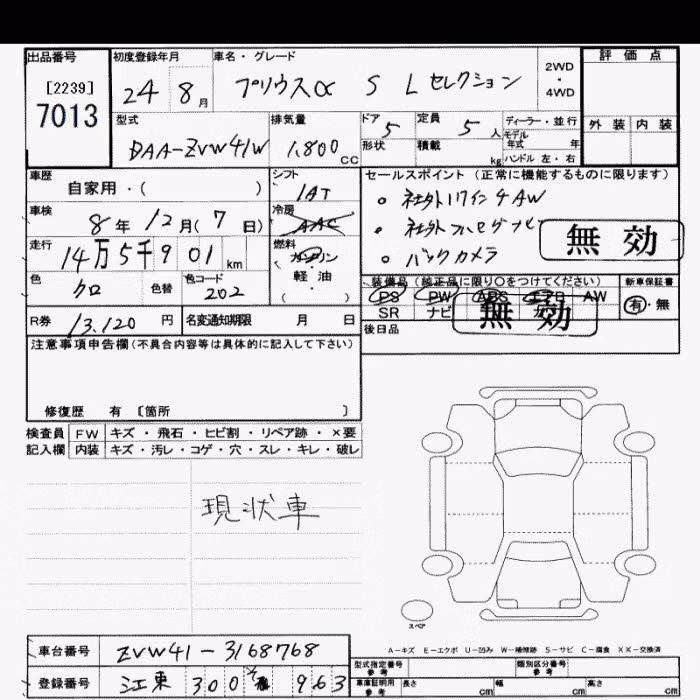 出品番号 初度登録年月 車名・グレード 評価点
[2239]
7013
24 年 8月 プリウスα S Lセレクション 2WD・4WD
型式 排気量 ドア 定員 ディーラー・並行 外装 内装
DAA-ZVW41W 1,800cc 5 5人 モデル年式 年
形状 積載 kg ハンドル 左・右
車歴 自家用・( ) シフト 1AT セールスポイント(正常に機能するものに限ります)
車検 8年 12月(7日) 冷房 AAC
。社外17インチAW
。社外フルセグナビ
。バックカメラ
無効
走行 14万5千901km 燃料 ガソリン 軽・油 ( )
色 クロ 色替 色コード 202
装備品(純正品に限り○をつけてください) 新車保証書
PS PW ABS エアB AW 有・無
SR ナビ
無効
後日品
R券 13,120円 名変通知期限 月 日
注意事項申告欄(不具合内容等は具体的に記入して下さい)
修復歴 有 〔箇所 〕
検査員 FW キズ・飛石・ヒビ割・リペア跡・×要
記入欄 内装 キズ・汚レ・コゲ・穴・スレ・キレ・破レ
現状車
スペア
A-キズ E-エクボ U-凹み W-補修跡 S-サビ C-腐食 XX-交換済
車台番号 ZVW41-3168768
登録番号 江東 300 そ 963
型式指定番号 参考 類別区分番号 参考
車庫証明用 参考 長さ cm 幅 cm 高さ cm